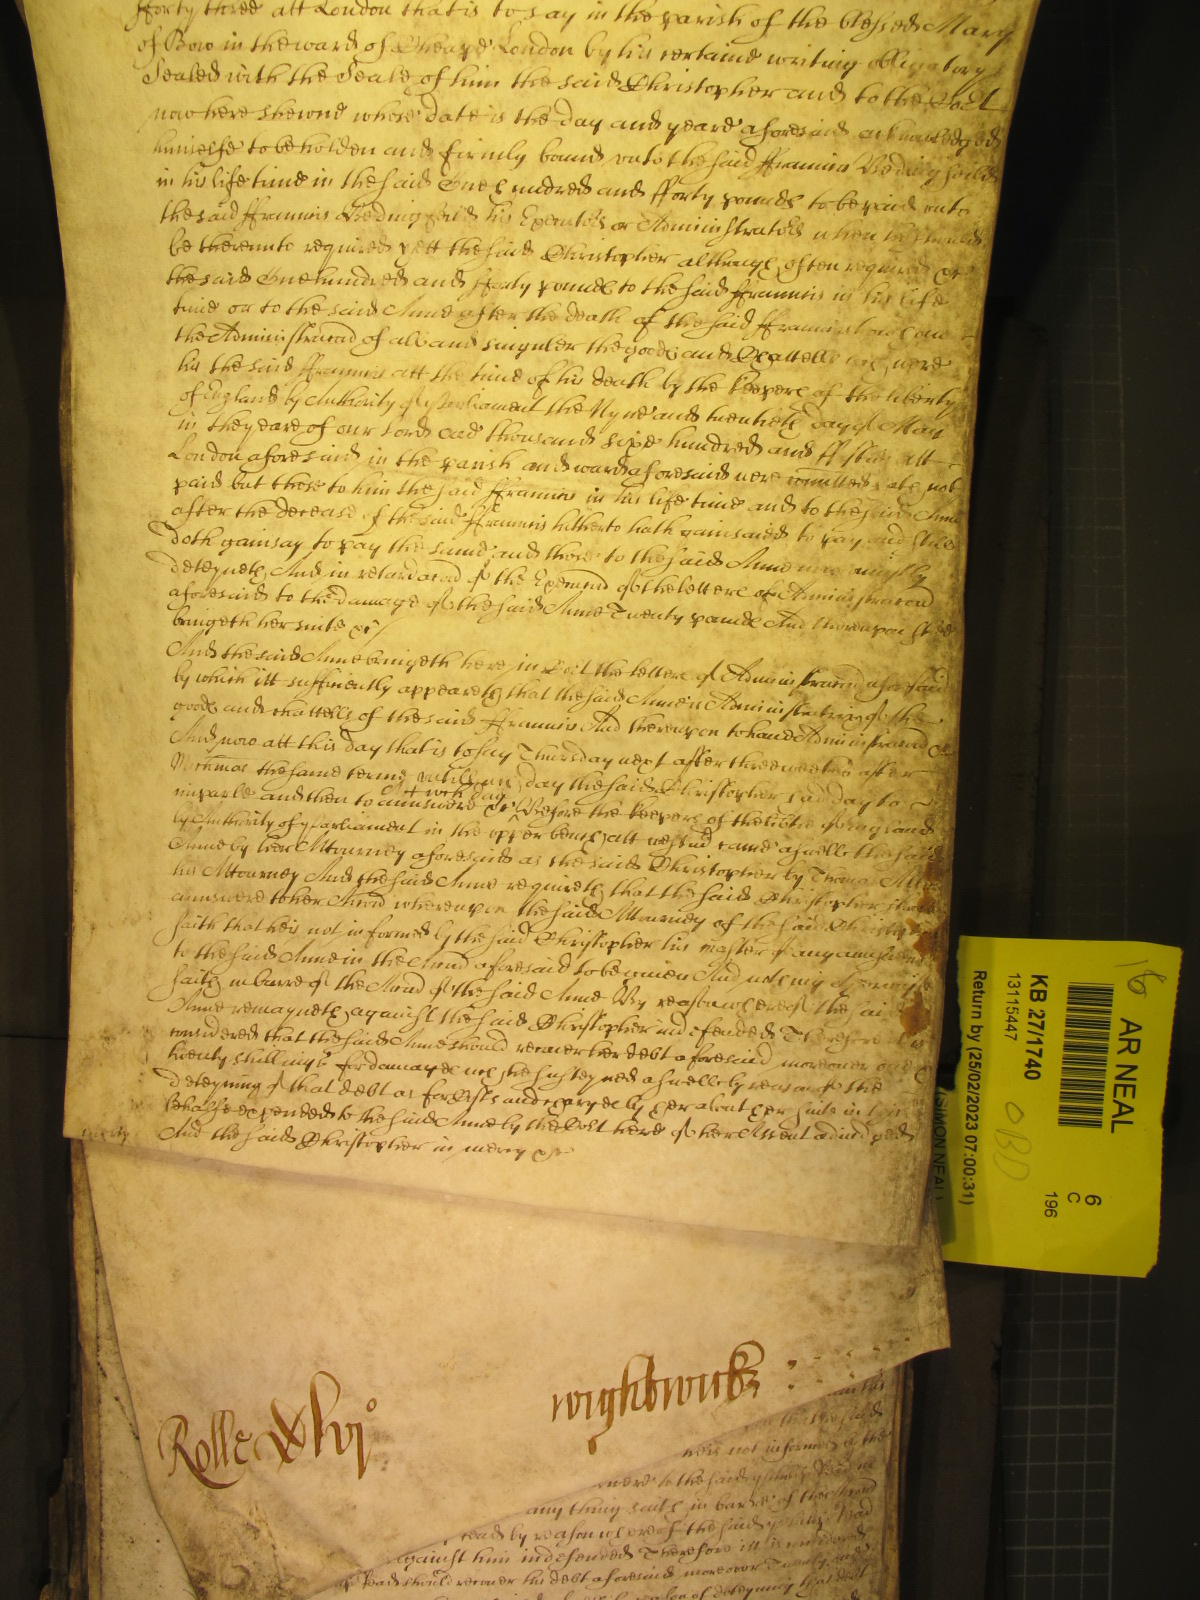 fforty three att London that is to say in the parish of the blessed Mary
of Bow in the ward of Cheape London by his certaine writing obligatory
Sealed with the Seale of him the said Christopher and to the Co't
now here shewne whose date is the day and yeare aforesaid acknowledged
himselfe to be holden and firmly bound unto the said ffrancis
in his life time in the said One hundred and fforty pounds to be paid unto
the said ffrancis his Executors or Administrators when he should
be thereunto required yett the said Christopher although often required &c
the said One hundred and fforty pounds to the said ffrancis in his life
time or to the said Anne after the death of the said ffrancis to
the Administracon of all and singuler the goods and Chattells were
his the said ffrancis att the time of his death by the Keepers of the liberty
of England by Authority of Parliament the Nyne and twentieth day of May
in the yeare of our Lord One thousand sixe hundred and att
London aforesaid in the parish and ward aforesaid were comitted hath not
paid but those to him the said ffrancis in his life time and to the said Anne
after the decease of the said ffrancis hitherto hath gainsaied to pay and still
doth gainsay to pay the same and those to the said Anne
deteyneth And in retardacon of the Execucon of the letters of Administracon
aforesaid to the damage of the said Anne Twenty pounds And thereupon shee
bringeth her suite &c
And the said Anne bringeth here in Co't the letters of Administracon aforesaid
by which itt sufficiently appeareth that the said Anne is Administratrix of the
goods and chattells of the said ffrancis And thereupon to have Administracon &c
And now att this day that is to say Thursday next after three weekes after
Michmas the same terme untill which day the said Christopher had day to
att wch day
imparle and then to answere &c Before the Keepers of the libtie of England
by Authority of Parliament in the upper bench att Westm' came aswell the said
Anne by her Attourney aforesaid as the said Christopher by Thomas
his Attourney And the said Anne requireth that the said Christopher
answere to her Accon whereupon the said Attourney of the said Christopher
saith that hee is not informed by the said Christopher his master of any answere
to the said Anne in the Accon aforesaid to be given And nothing
saith in barre of the Accon of the said Anne By reason whereof the said
Anne remayneth against the said Christopher indefended Therefore it is
considered that the said Anne should recover her debt aforesaid moreover
twenty shillings for damages wch she susteyned aswell by reason of the
deteyning of that debt as for costs and charges by her about her suite in this
behalfe expended to the said Anne by the Co't here of her Assent adiudged
And the said Christopher in mercy &c
mercy
Rolle xlvj°
wightwick
that the said
hee is not informed of the
answere to the said
any thing saith in barre of the Accon
by reason whereof the said
against him indefended Therefore itt is considered
should recover his debt aforesaid moreover Twenty
reason of deteyning that debt
16
AR NEAL
KB 27/1740
13115447
Return by (25/02/2023 07:00:31)
(SIMON NEAL)
6
C
196
OBD